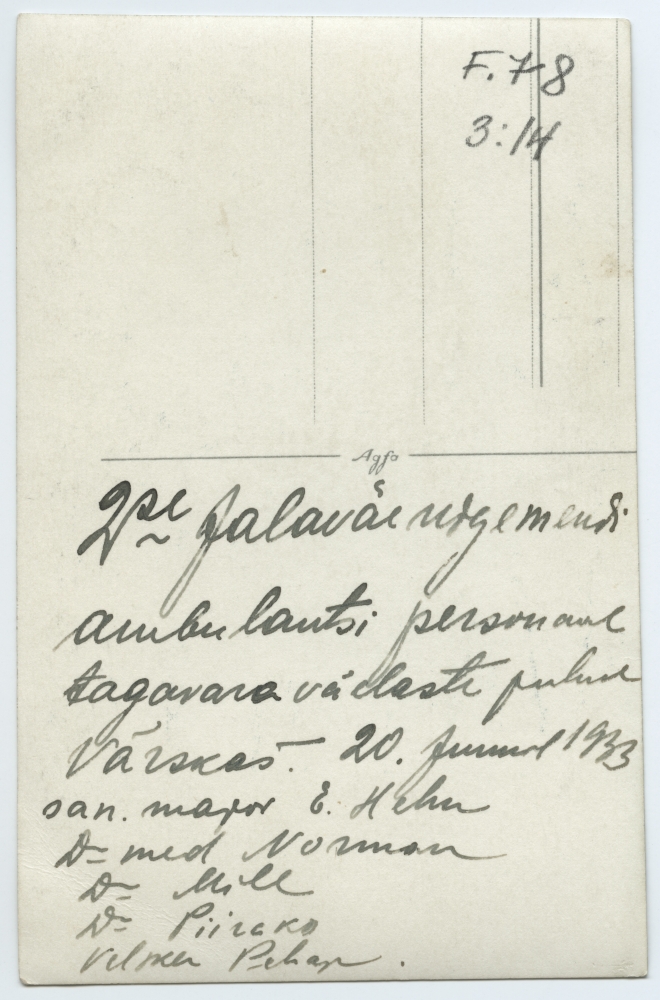 F. 7-8
3:14
Agfa
2se Jalaväe rügemendi
ambulantsi personaal
tagavaraväelaste puhul
Värskas. 20. juunil 1933
san. major E. Hehn
Dr med Norman
Dr Mill
Dr Piirako